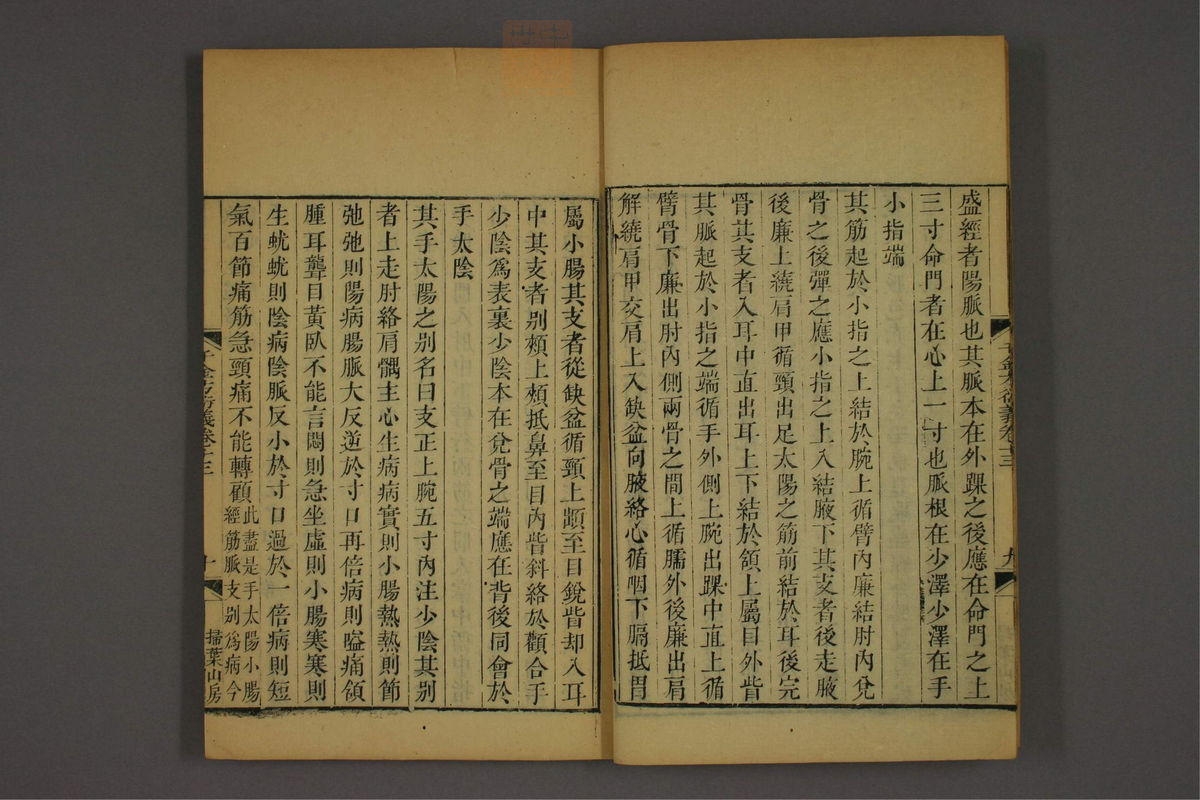 盛經者陽脈也其脈本在外踝之後應在命門之上
三寸命門者在心上一寸也脈根在少澤少澤在手
小指端
其筋起於小指之上結於腕上循臂內廉結肘內兌
骨之後彈之應小指之上入結腋下其支者後走腋
後廉上繞肩甲循頸出足太陽之筋前結於耳後完
骨其支者入耳中直出耳上下結於頷上屬目外眥
其脈起於小指之端循手外側上腕出踝中直上循
臂骨下廉出肘內側兩骨之間上循臑外後廉出肩
解繞肩甲交肩上入缺盆向腋絡心循咽下膈抵胃
千金方衍義卷十三
九
屬小腸其支者從缺盆循頸上頰至目銳眥却入耳
中其支者别頰上䪼抵鼻至目內眥斜絡於顴合手
少陰爲表裏少陰本在兌骨之端應在背後同會於
手太陰
其手太陽之别名曰支正上腕五寸內注少陰其别
者上走肘絡肩髃主心生病病實則小腸熱熱則節
弛弛則陽病腸脈大反逆於寸口再倍病則嗌痛頷
腫耳聾目黃臥不能言悶則急坐虛則小腸寒寒則
生䏢䏢則陰病陰脈反小於寸口過於一倍病則短
氣百節痛筋急頸痛不能轉顧此盡是手太陽小腸
經筋脈支别爲病今
千金方衍義卷十三
十
掃葉山房